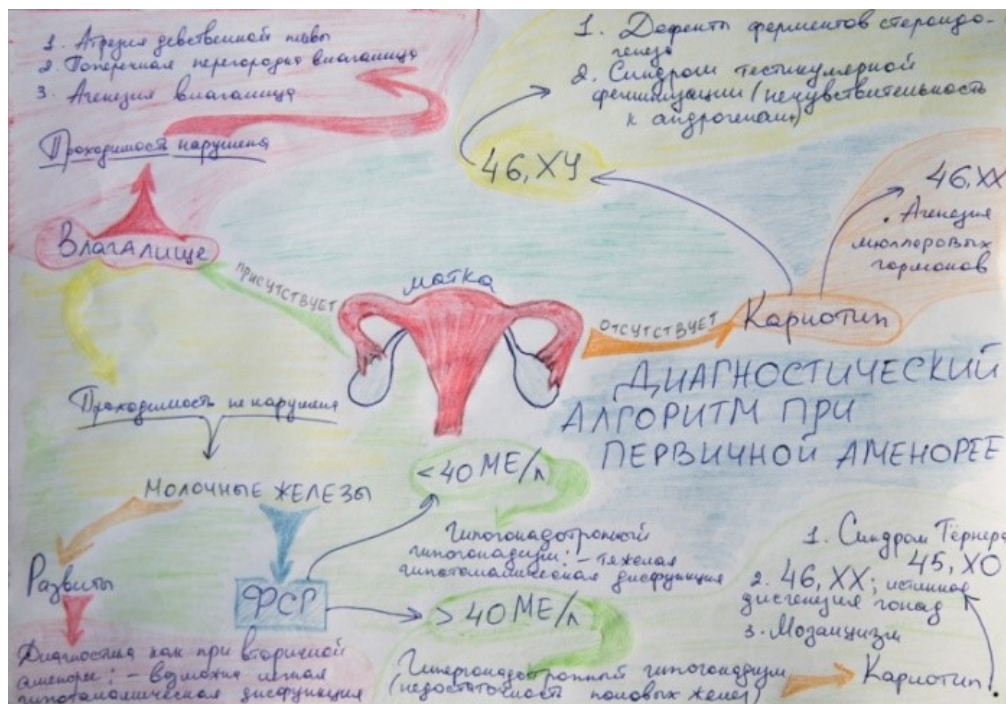 1. Атрезия девственной плевы
2. Поперечная перегородка влагалища
3. Агенезия влагалища
Проходимость нарушена
Влагалище
ПРИСУТСТВУЕТ
матка
ОТСУТСТВУЕТ
Кариотип
46, ХУ
1. Дефекты ферментов стероидо-
генеза
2. Синдром тестикулярной
феминизации (нечувствительность
к андрогенам)
46, ХХ
. Агенезия
мюллеровых
гормонов
ДИАГНОСТИЧЕСКИЙ
АЛГОРИТМ ПРИ
ПЕРВИЧНОЙ АМЕНОРЕЕ
Проходимость не нарушена
МОЛОЧНЫЕ ЖЕЛЕЗЫ
Развиты
Диагностика как при вторичной
аменорее: - возможна
гипоталамическая дисфункция
ФСГ
<40 МЕ/л
Гипогонадотропный
гипогонадизм: - тяжелая
гипоталамическая дисфункция
>40 МЕ/л
Гипергонадотропный гипогонадизм
(недостаточность половых желез)
Кариотип
1. Синдром Тёрнера
45, ХО
2. 46, ХХ; истинная
дисгенезия гонад
3. Мозаицизм